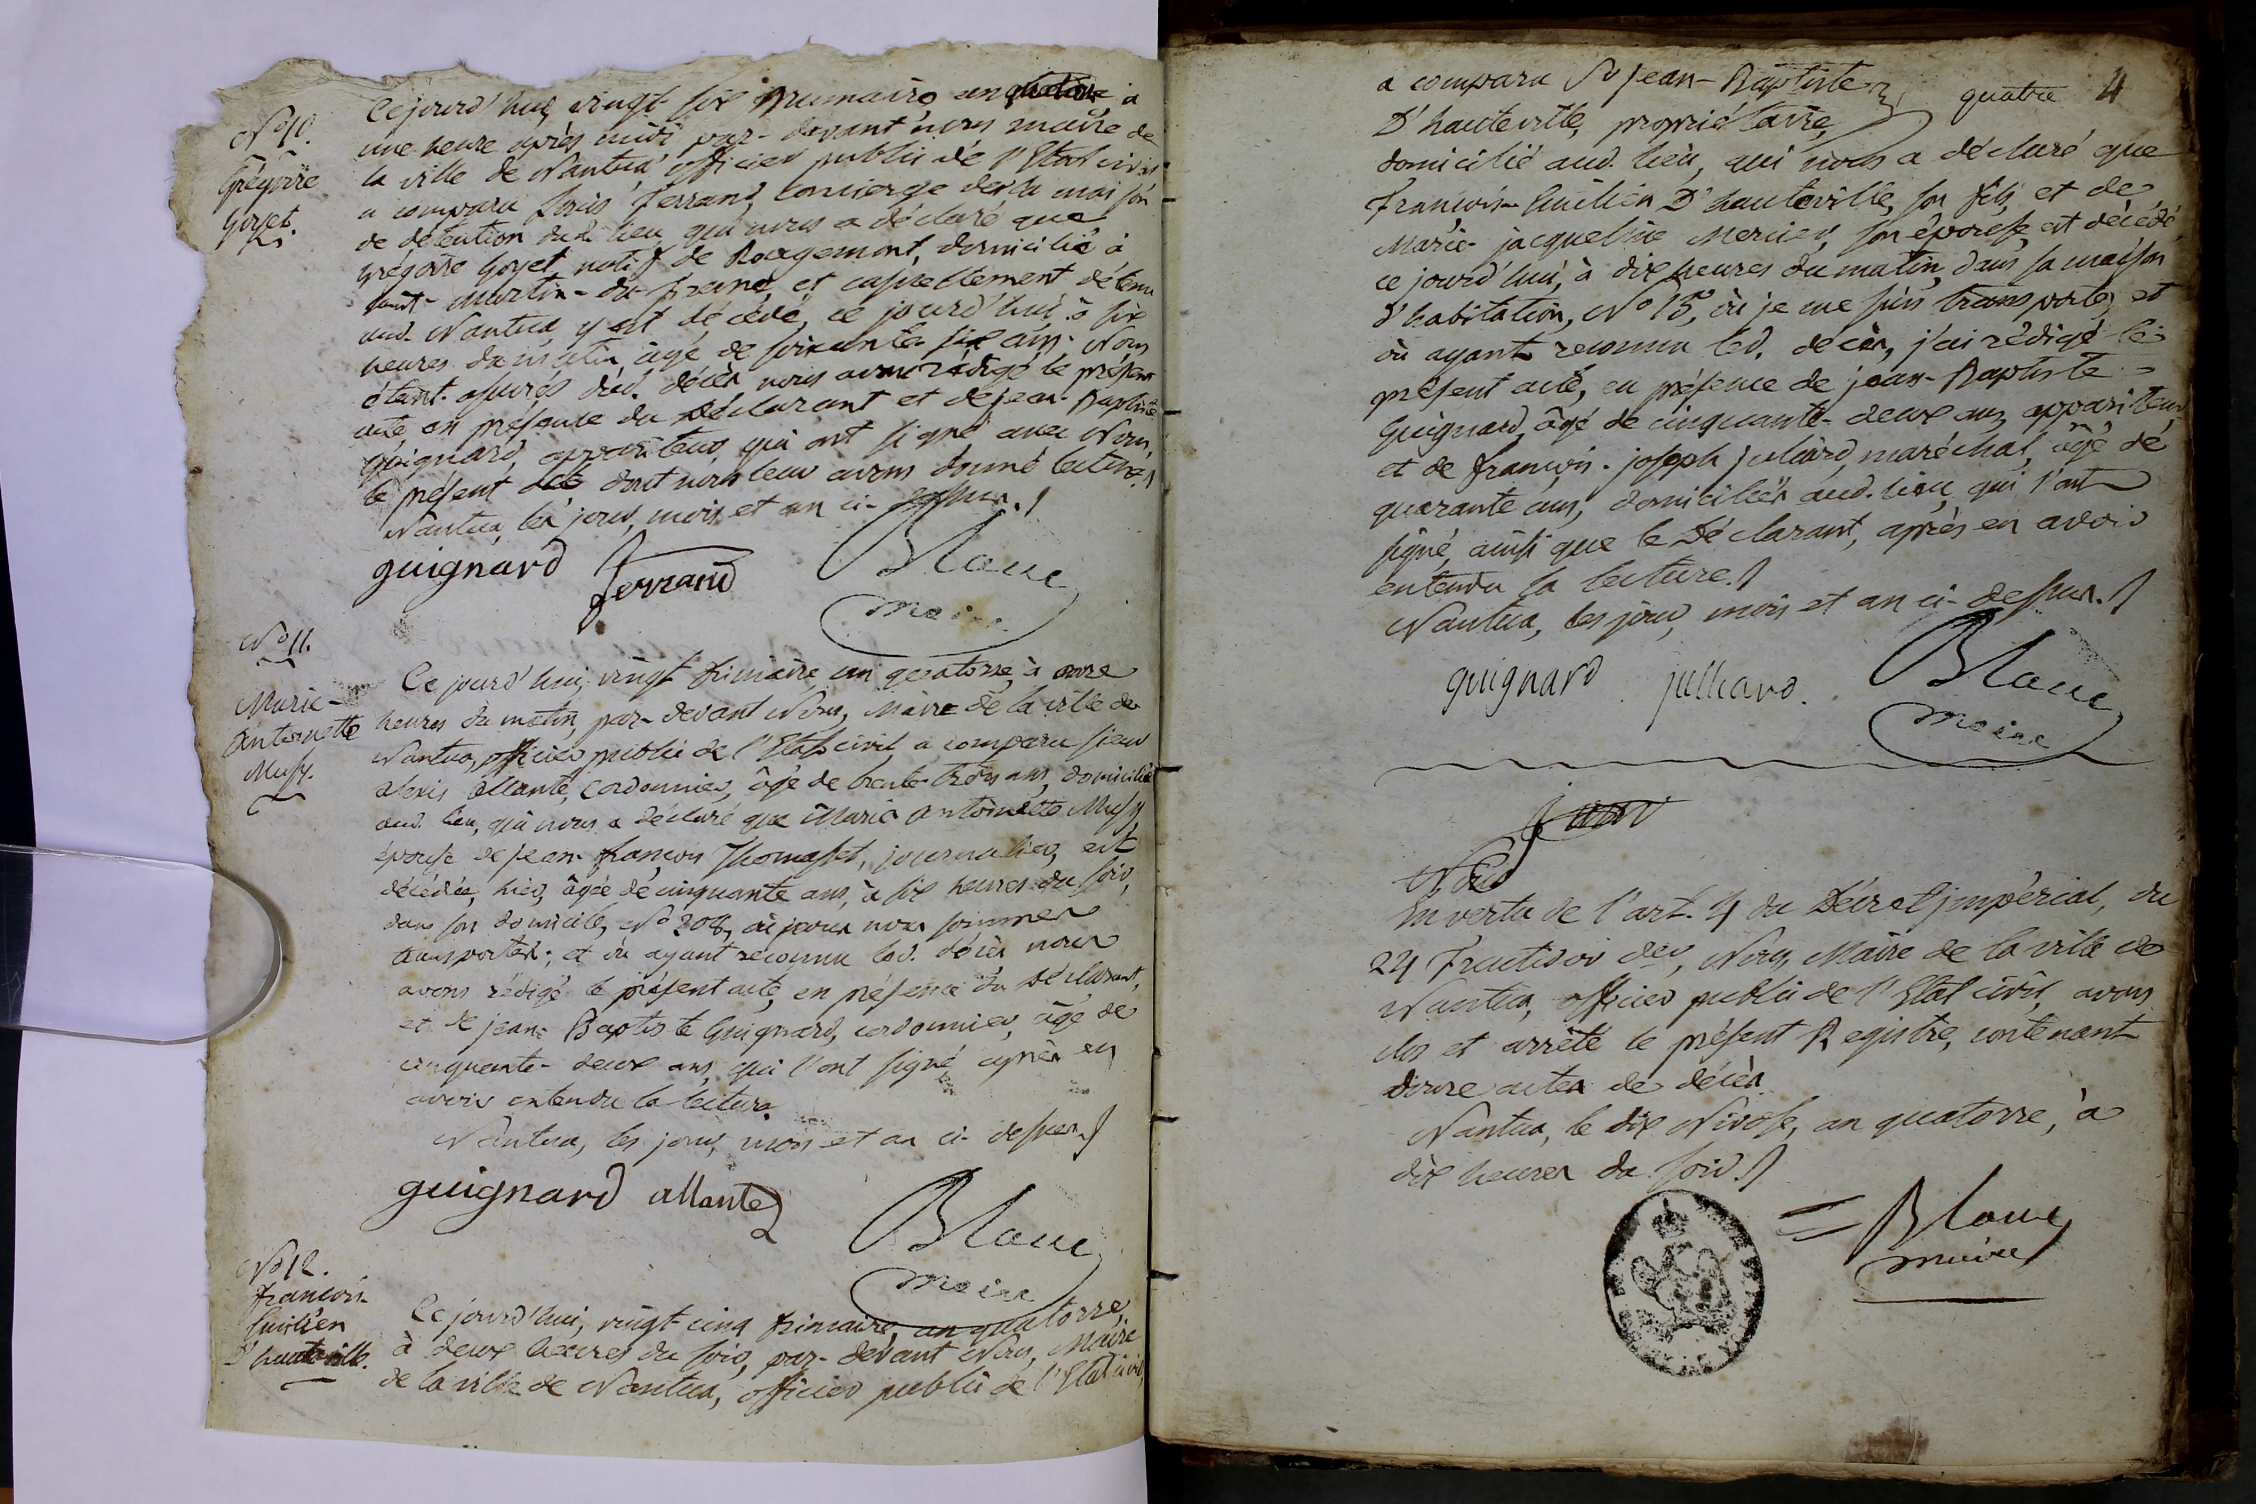 N° 10.
Grégoire
Goyet.
Ce jourd'hui, vingt six Brumaire, an quatorze, à
une heure après midi par-devant nous maire de
la ville de Nantua officier public de l'Etat civil
a comparu Ferrand, concierge de la maison
de détention dud. lieu, qui nous a déclaré que
Grégoire Goyet, natif de Rougemont, domicilié à
saint-martin-du-frene, et actuellement détenu
aud. Nantua, y est décédé, ce jourd'hui à six
heures du matin, âgé de soixante six ans. Nous
étant assurés dud. décès nous avons rédigé le présent
acte, en présence du Déclarant et de jean Baptiste
Guignard, appariteur, qui ont signé avec Nous,
le présent acte dont nous leur avons donné lecture.
Nantua, les jour, mois et an ci-dessus.
guignard ferrand Blanc
maire
N° 11.
Marie-
Antoinette
Musy.
Ce jourd'hui, vingt frimaire, an quatorze, à onze
heures du matin, par-devant Nous, Maire de la ville de
Nantua, officier public de l'Etat civil, a comparu sieur
alexis allante, Cordonnier, âgé de trente-trois ans, domicilié
aud. lieu, qui nous a déclaré que Marie Antoinette Musy,
épouse de jean-françois Thomasset, journalier, est
décédée, hier, âgée de cinquante ans, à six heures du soir,
dans son domicile, N° 208, où nous sommes
transportés; et où ayant reconnu led. décès nous
avons rédigé le présent acte, en présence du Déclarant,
et de jean-Baptiste Guignard, cordonnier, âgé de
cinquante-deux ans, qui l'ont signé après en
avoir entendu la lecture.
Nantua, les jour, mois et an ci-dessus.
guignard allante Blanc
maire
N° 12.
françois-
D'hauteville.
Ce jourd'hui, vingt cinq frimaire, an quatorze,
à deux heures du soir, par-devant Nous, Maire
de la ville de Nantua, officier public de l'Etat civil,
quatre 4
a comparu Sr jean-Baptiste
D'hauteville, propriétaire,
domicilié aud. lieu, qui nous a déclaré que
françois D'hauteville, son fils, et de
Marie-jacqueline Mercier, son épouse, est décédé
ce jourd'hui, à dix heures du matin, dans sa maison
d'habitation, N° 15, où je me suis transporté, et
où ayant reconnu led. décès, j'ai rédigé le
présent acte, en présence de jean-Baptiste
Guignard, âgé de cinquante-deux ans, appariteur,
et de françois-joseph juliard, maréchal, âgé de
quarante ans, domiciliés aud. lieu, qui l'ont
signé, ainsi que le Déclarant, après en avoir
entendu la lecture.
Nantua, les jour, mois et an ci-dessus.
guignard julliard. Blanc
maire
Nous
En vertu de l'art. 4 du Décret impérial, du
24 Fructidor der, Nous, Maire de la ville de
Nantua, officier public de l'Etat civil, avons
clos et arrêté le présent Registre, contenant
douze actes de décès
Nantua, le dix Nivose, an quatorze, à
dix heures du soir.
Blanc
maire